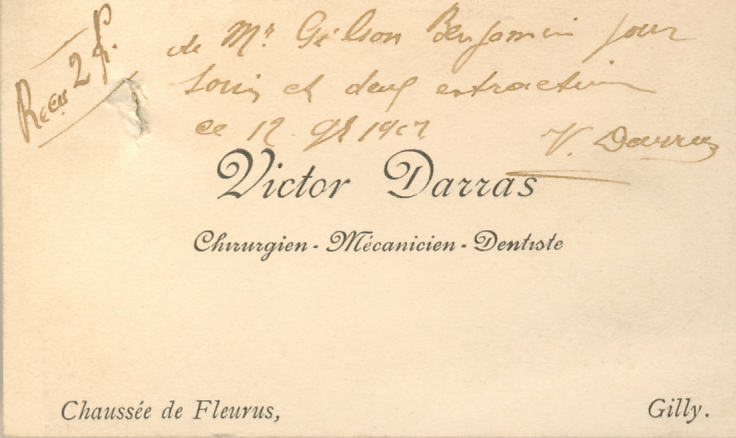 Reçu 2 f.
de Mr Gilson Benjamin pour
soins et deux extractions
ce 12 1907
V. Darras
Victor Darras
Chirurgien - Mécanicien - Dentiste
Chaussée de Fleurus,
Gilly.